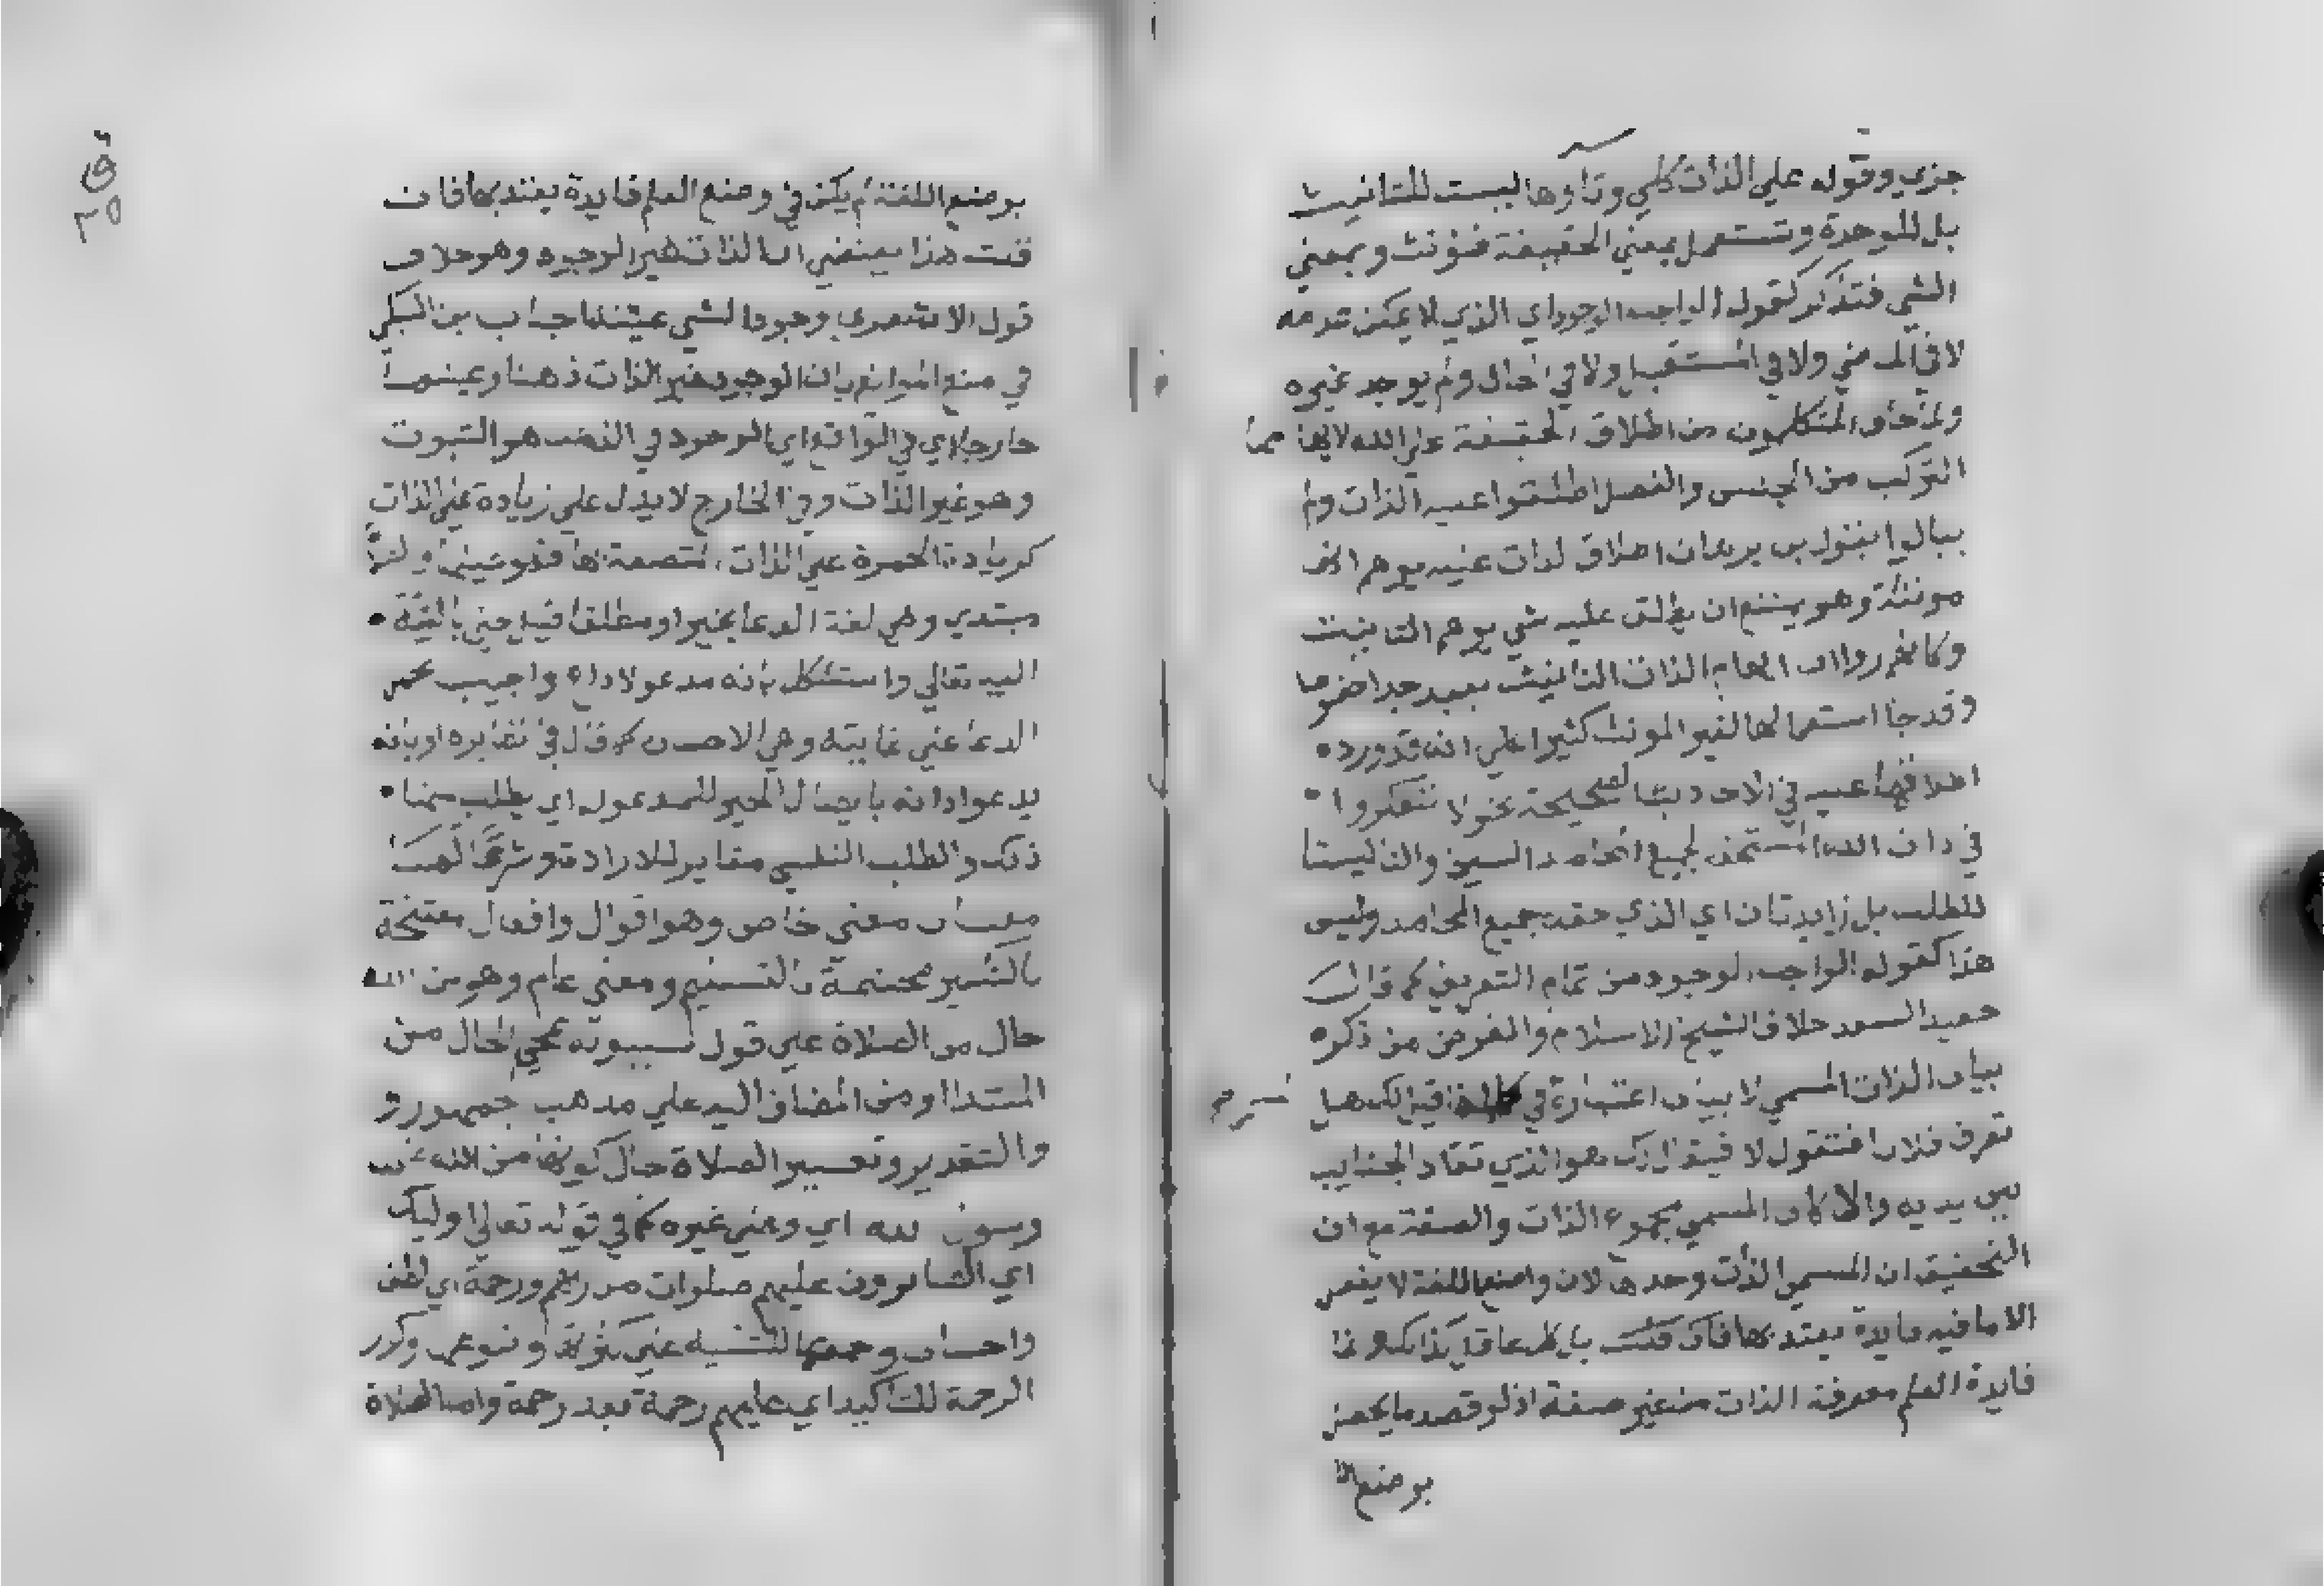 جزي وقوله علي الذات كلي وتاوها ليست للتانيث
بل للوحدة وتستعمل بمعني الحقيقة فتؤنث وبمعني
الشي فتذكر كقوله الواجب الوجود اي الذي لا يمكن عدمه
لا في الماضي ولا في المستقبل ولا في الحال ولم يوجد غيره
ولما خاف المتكلمون من اطلاق الحقيقة علي الله لايهامها
التركيب من الجنس والفصل اطلقوا عليه الذات ولم
يبالوا بقول بن برهان اطلاق الذات عليه يوهم انه
مونثة وهو يمتنع ان يطلق عليه شي يوهم التانيث
وكانهم راوا ان ايهام الذات التانيث بعيد جدا خصوصا
وقد جا استعمالها لغير المونث كثيرا علي انه قد ورد
اطلاقها عليه في الاحاديث الصحيحة نحو لا تتفكروا
في ذات الله المستحق لجميع المحامد السين والتا ليستا
للطلب بل زايدتان اي الذي حقه جميع المحامد وليس
هذا كقوله الواجب الوجود من تمام التعريف كما قال
حفيد السعد خلافا لشيخ الاسلام والغرض من ذكره
بيان الذات المسمي لا بيان اعتباره في قيل لك هل
تعرف فلانا فتقول لا فيقال لك هو الذي تقاد الجنايب
بين يديه والا كان المسمي مجموع الذات والصفة مع ان
التحقيق ان المسمي الذات وحدها لان واضع اللغة لا يضع
الا ما فيه فايدة يعتد بها فان قلت
فايدة العلم معرفة الذات من غير صفة اذ لو قصد ما يحصل
بوضع ال
بوضع اللغة لم يكن في وضع العلم فايدة يعتد بها فان
قلت هذا يقتضي ان الذات غير الوجود وهو خلاف
قول الاشعري وجود الشي عينه اجاب بن السبكي
في منع الموانع بان الوجود غير الذات ذهنا وعينها
خارجا اي في الواقع اي الوجود في الذهن هو الثبوت
وهو غير الذات وفي الخارج لا يدل علي زيادة علي الذات
كزيادة الحمرة علي الذات المتصفة بها فهو عينها
مبتدي وهي لغة الدعا بخير او مطلقا قيل حتي بالنسبة
اليه تعالي واستشكل بانه مدعو لا داع واجيب بحمل
الدعا علي غايته وهي الاحسان كما قال في نظايره او بانه
يدعوا ذاته بايصال الخير للمدعو له اي يطلب منها
ذلك والطلب النفسي مغاير للارادة وشرعا لها
معنيان معني خاص وهو اقوال وافعال مفتتحة
بالتكبير مختتمة بالتسليم ومعني عام وهو من الله
حال من الصلاة علي قول سيبويه بمجي الحال من
المبتدا او من المضاف اليه علي مذهب جمهور
والتقدير وتفسير الصلاة حال كونها من الله
اي وعلي غيره كما في قوله تعالي اوليك
اي الصابرون عليهم صلوات من ربهم ورحمة اي لطف
واحسان وجمعها للتنبيه علي كثرتها وتنوعها وكرر
الرحمة للتاكيد اي عليهم رحمة بعد رحمة واما الصلاة
٣٥